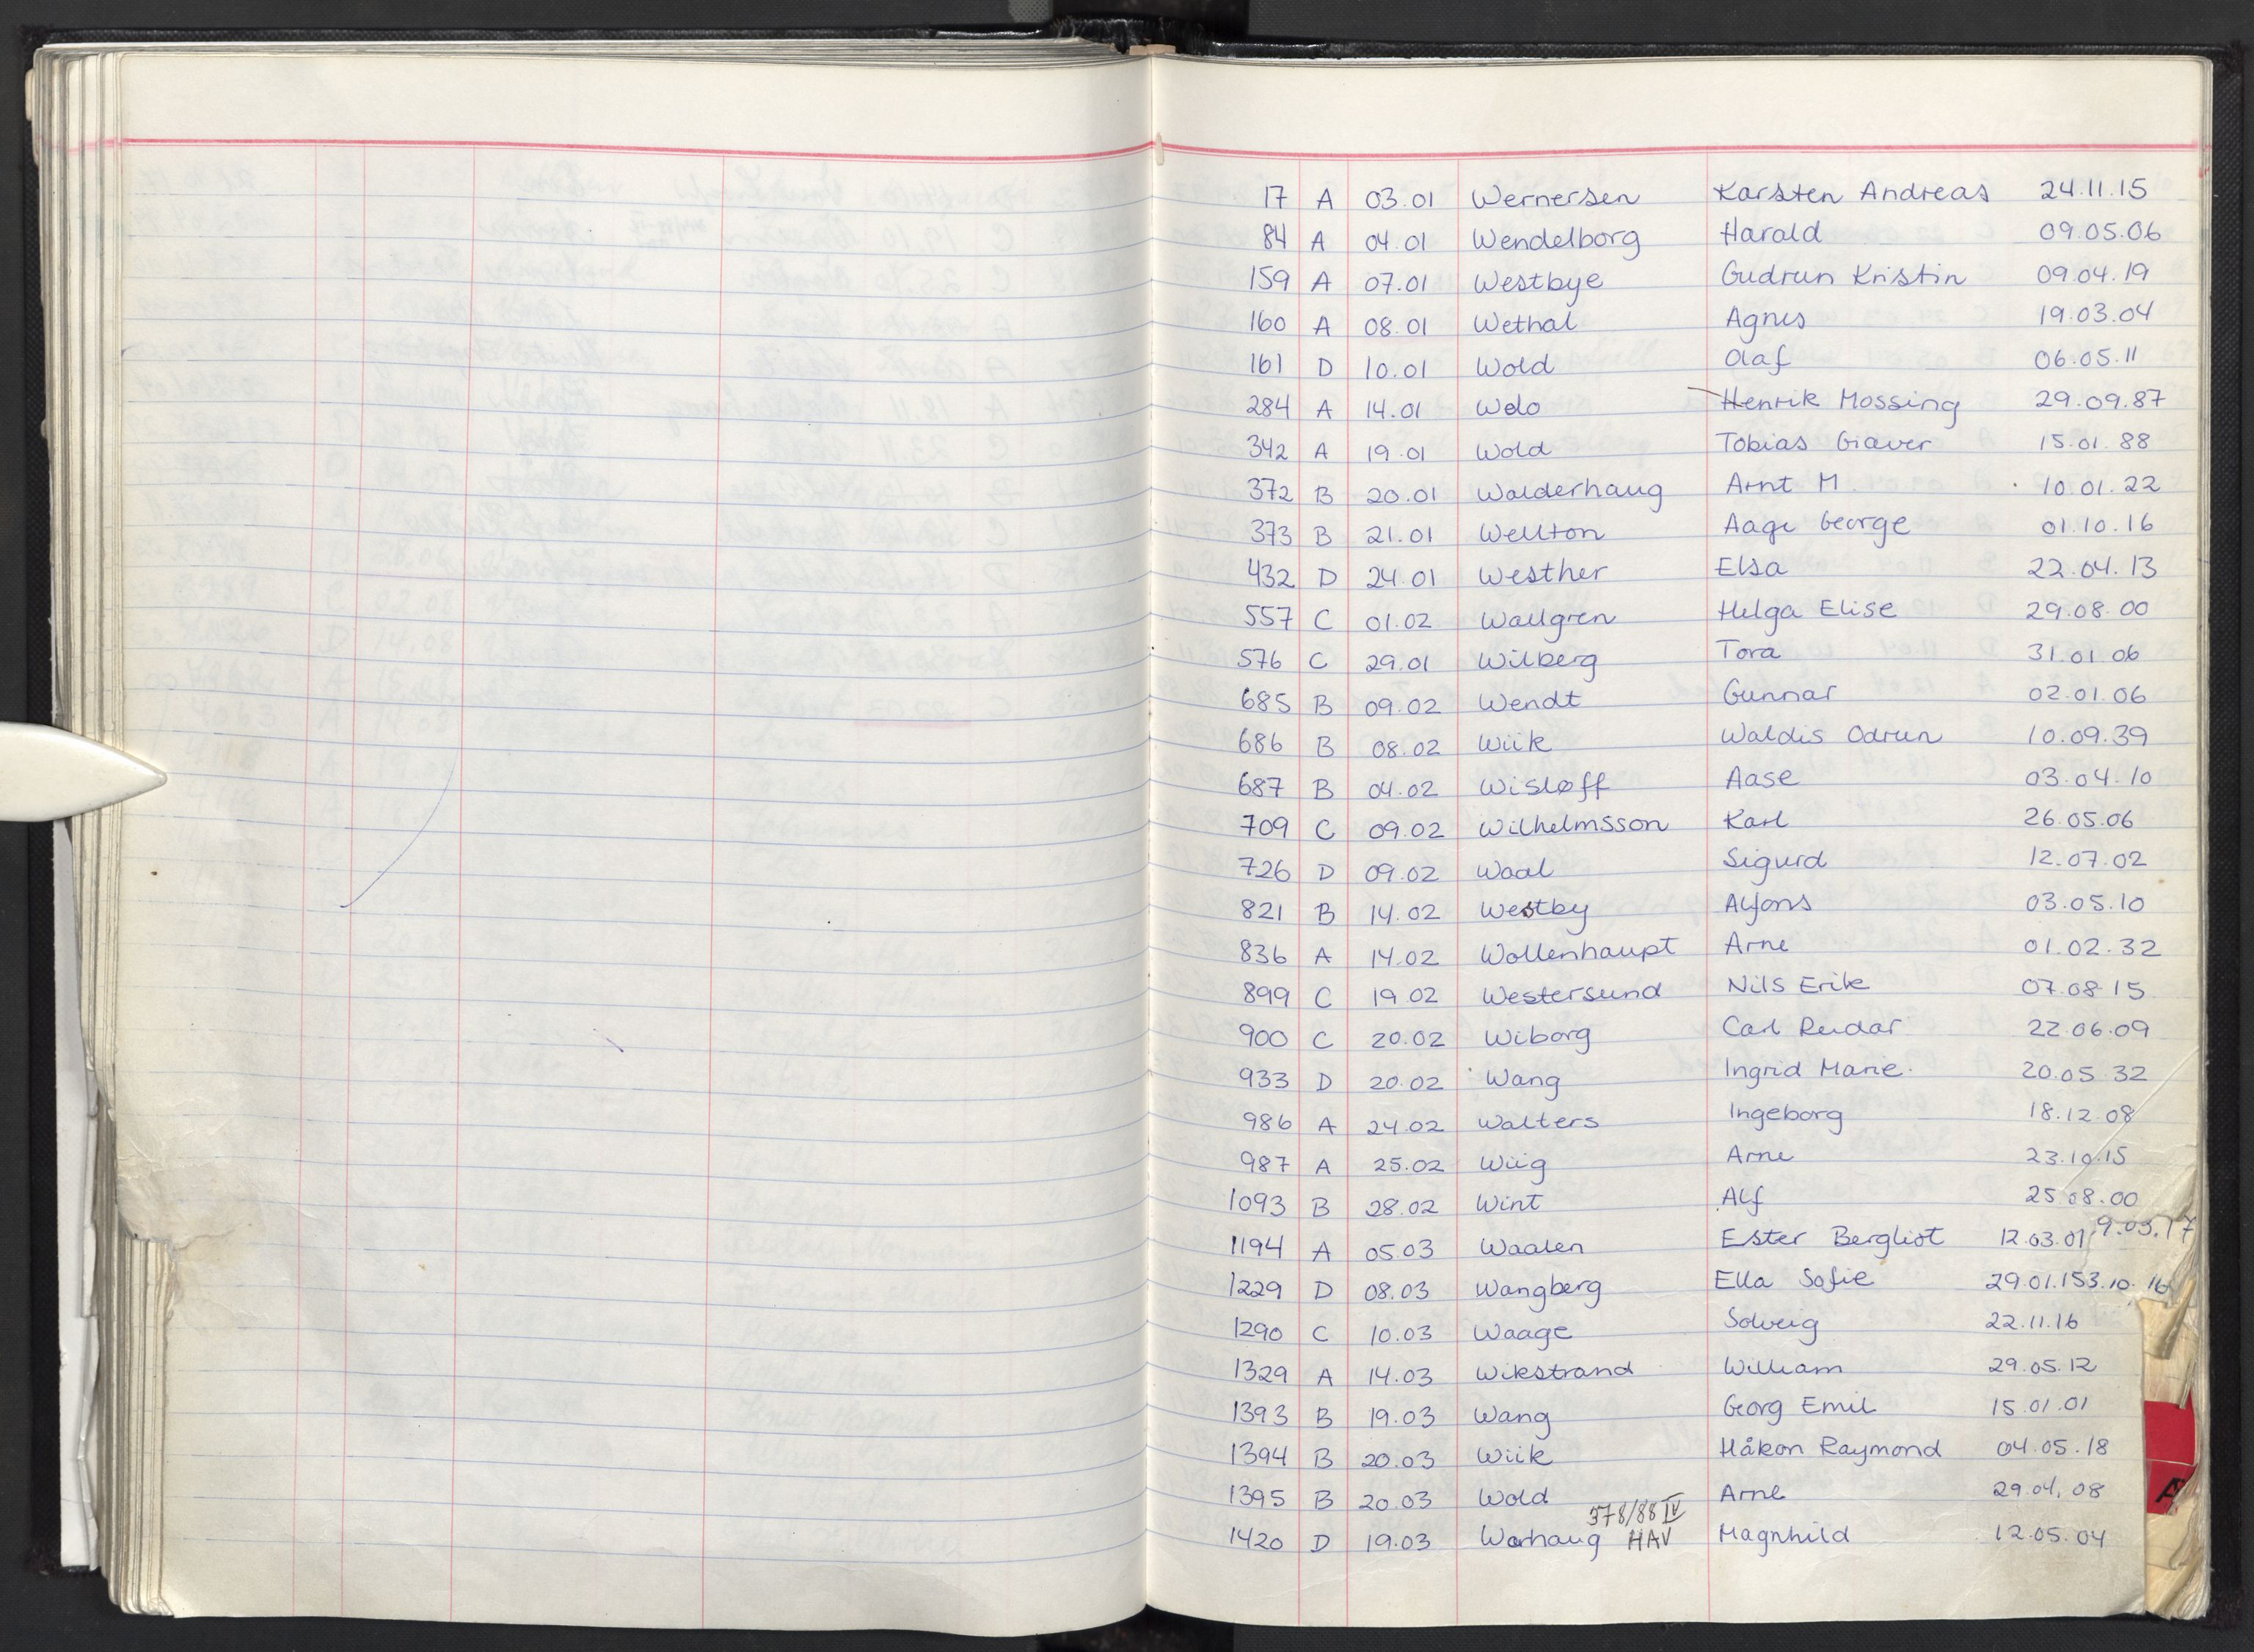 17 A 03.01 Wernersen Karsten Andreas 24.11.15
84 A 04.01 Wendelborg Harald 09.05.06
159 A 07.01 Westbye Gudrun Kristin 09.04.19
160 A 08.01 Wethal Agnes 19.03.04
161 D 10.01 Wold Olaf 06.05.11
284 A 14.01 Welo Henrik Mossing 29.09.87
342 A 19.01 Wold Tobias Giæver 15.01.88
372 B 20.01 Walderhaug Arnt M. 10.01.22
373 B 21.01 Wellton Aage George 01.10.16
432 D 24.01 Westher Elsa 22.04.13
557 C 01.02 Wallgren Helga Elise 29.08.00
576 C 29.01 Wilberg Tora 31.01.06
685 B 09.02 Wendt Gunnar 02.01.06
686 B 08.02 Wiik Waldis Odrun 10.09.39
687 B 04.02 Wisløff Aase 03.04.10
709 C 09.02 Wilhelmsson Karl 26.05.06
726 D 09.02 Waal Sigurd 12.07.02
821 B 14.02 Westby Alfons 03.05.10
836 A 14.02 Wollenhaupt Arne 01.02.32
899 C 19.02 Westersund Nils Erik 07.08.15
900 C 20.02 Wiborg Carl Reidar 22.06.09
933 D 20.02 Wang Ingrid Marie 20.05.32
986 A 24.02 Walters Ingeborg 18.12.08
987 A 25.02 Wiig Arne 23.10.15
1093 B 28.02 Wint Alf 25.08.00
1194 A 05.03 Waalen Ester Bergliot 12.03.01 9.03.17
1229 D 08.03 Wangberg Ella Sofie 29.01.15 3.10.16
1290 C 10.03 Waage Solveig 22.11.16
1329 A 14.03 Wikstrand William 29.05.12
1393 B 19.03 Wang Georg Emil 15.01.01
1394 B 20.03 Wiik Håkon Raymond 04.05.18
1395 B 20.03 Wold Arne 29.04.08
378/88 IV
1420 D 19.03 Warhaug HAV Magnhild 12.05.04